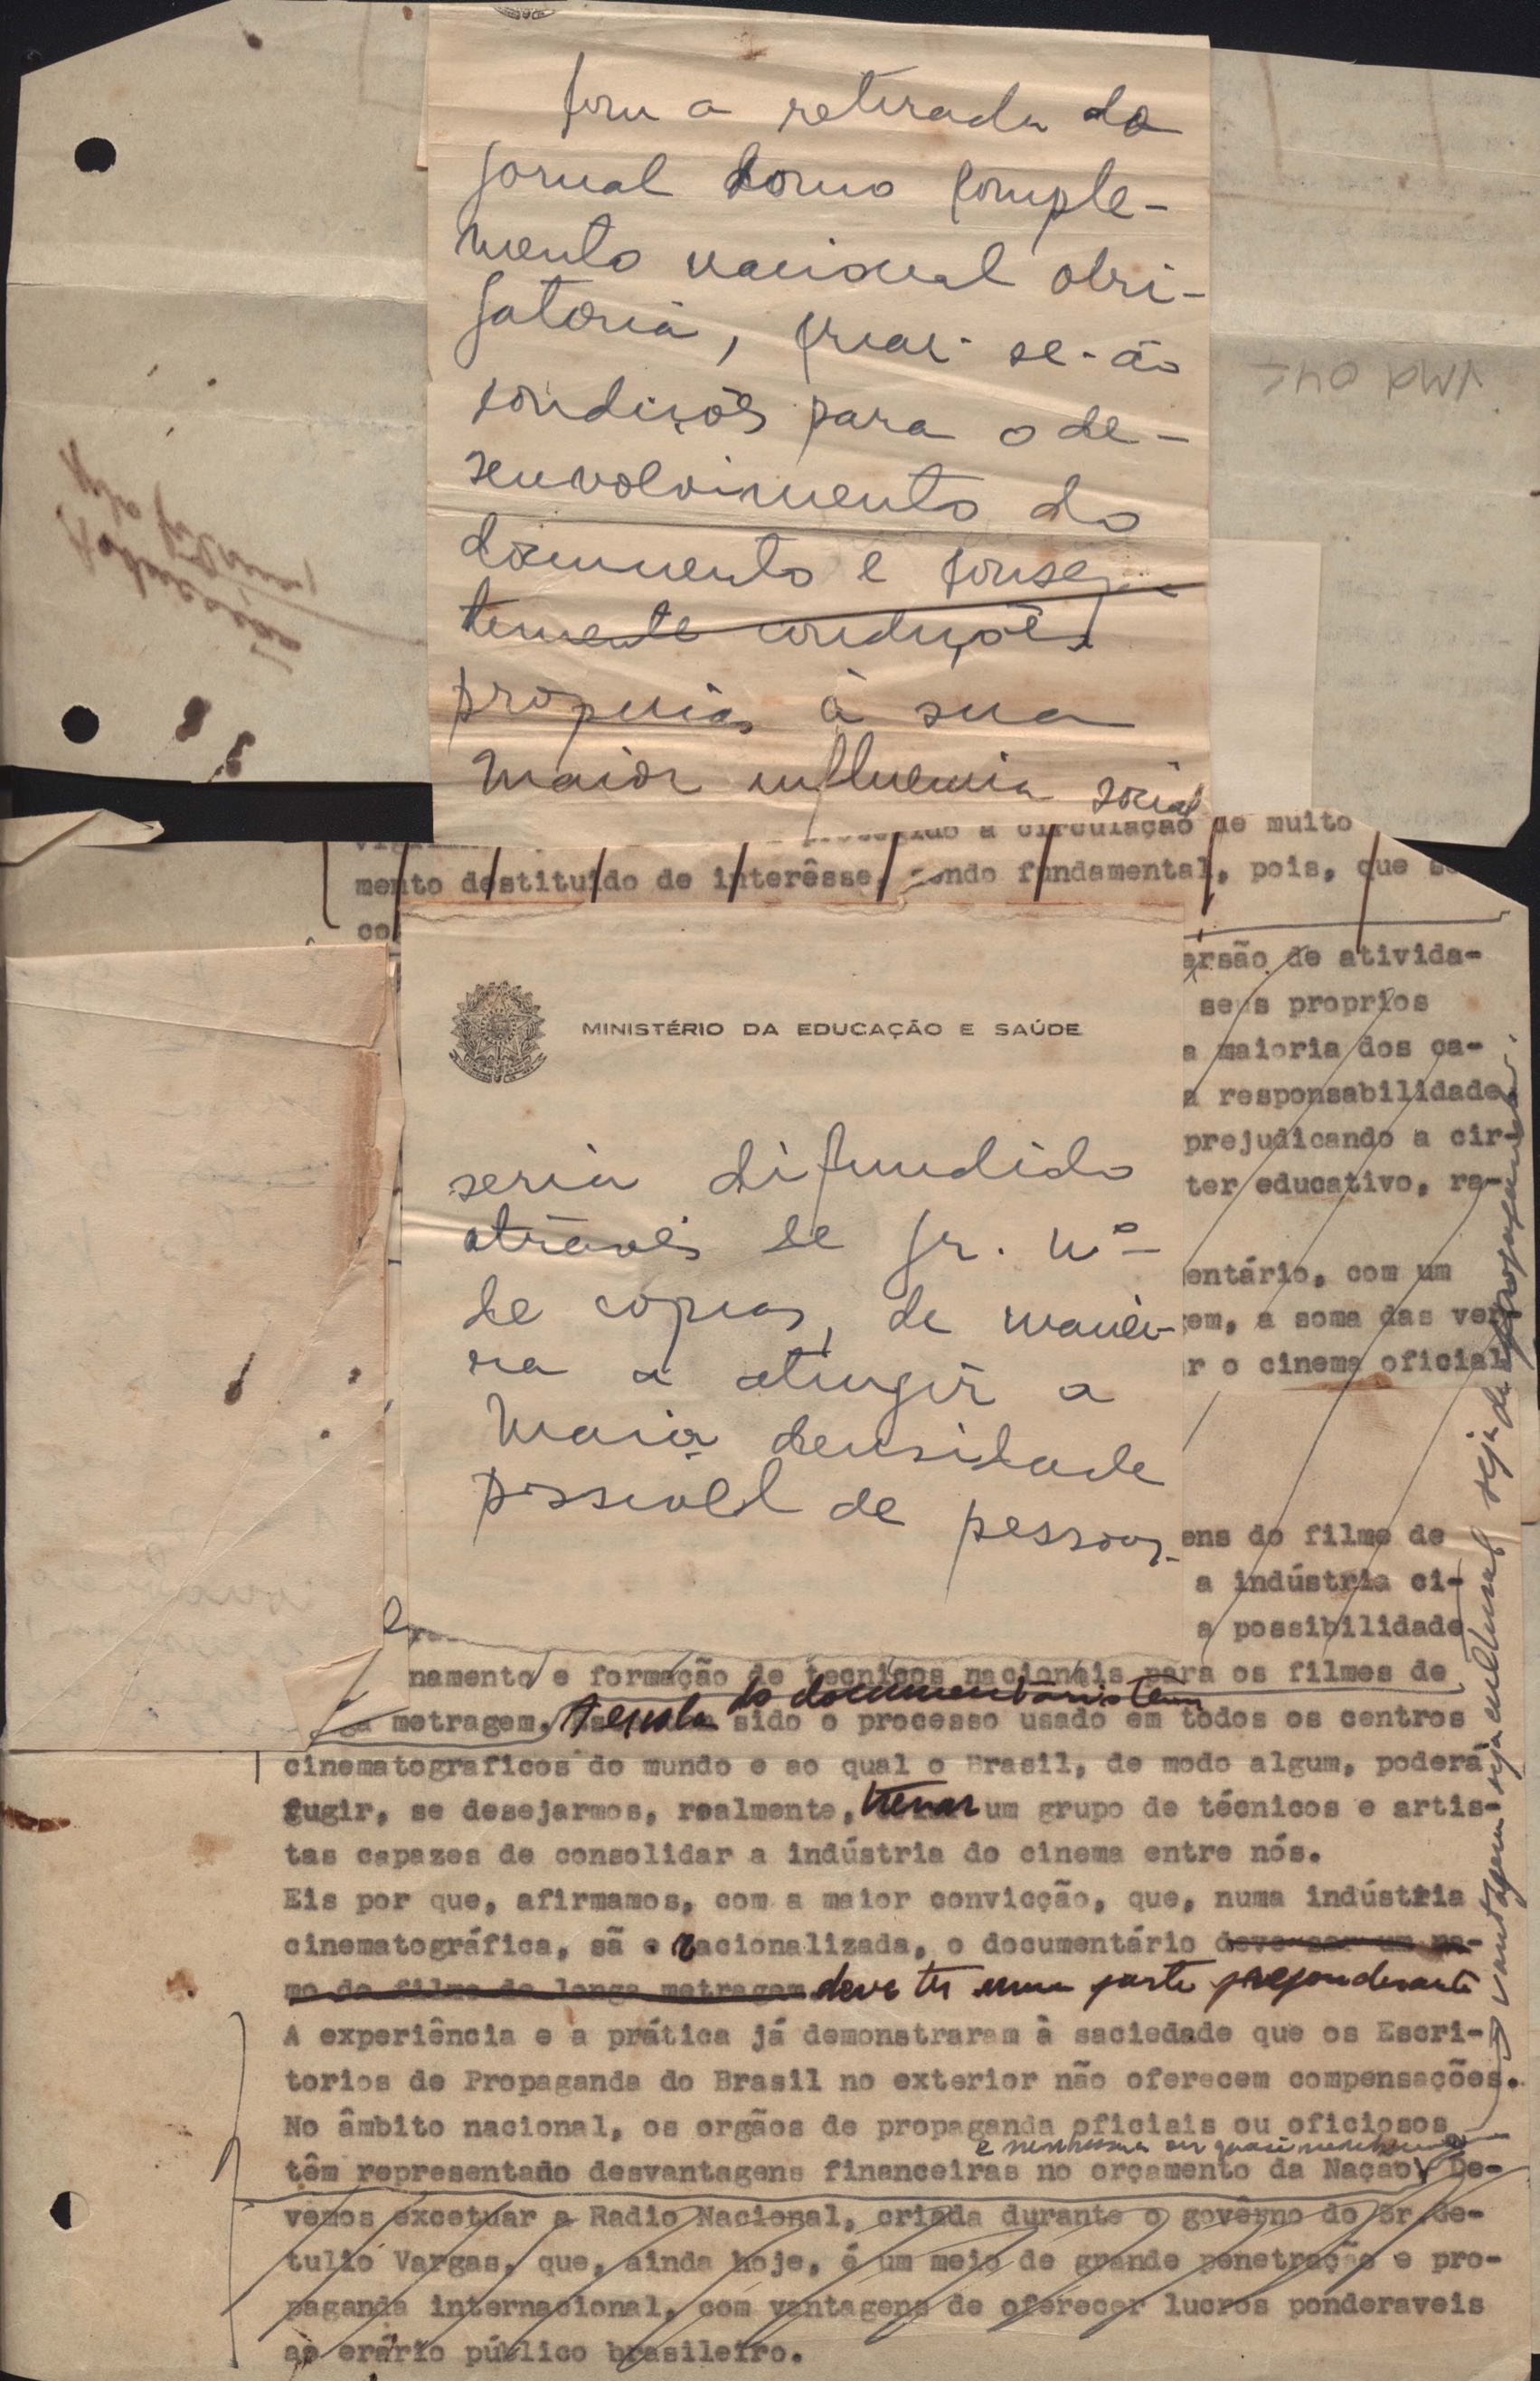 Com a retirada do
jornal como comple-
mento nacional obri-
gatoria, criar-se-ão
condições para o de-
senvolvimento do
documento e
temente condições
propicias à sua
maior influencia social
a circulação de muito
mento destituido de interêsse, sendo fundamental, pois, que se
co
ersão de ativida-
seus proprios
a maioria dos ca-
a responsabilidade
prejudicando a cir-
ter educativo, ra-
MINISTÉRIO DA EDUCAÇÃO E SAÚDE
seria difundido
através de gr. nº
de copias, de manei-
ra a atingir a
maior densidade
possivel de pessoas.
entário, com um
em, a soma das ver
r o cinema oficial
ens do filme de
a indústria ci-
a possibilidade
namento e formação de tecnicos nacionais para os filmes de
metragem. A escola do documentário tem sido o processo usado em todos os centros
cinematograficos do mundo e ao qual o Brasil, de modo algum, poderá
fugir, se desejarmos, realmente, treinar um grupo de técnicos e artis-
tas capazes de consolidar a indústria do cinema entre nós.
Eis por que, afirmamos, com a maior convicção, que, numa indústria
cinematográfica, sã e racionalizada, o documentário deve ser um ra-
mo do filme de longa metragem deve ter uma parte preponderante
A experiência e a prática já demonstraram à saciedade que os Escri-
torios de Propaganda do Brasil no exterior não oferecem compensações.
No âmbito nacional, os orgãos de propaganda oficiais ou oficiosos
e nenhuma ou quasi nenhuma
têm representado desvantagens financeiras no orçamento da Nação. De-
vemos excetuar a Radio Nacional, criada durante o govêrno do Sr. Ge-
tulio Vargas, que, ainda hoje, é um meio de grande penetração e pro-
paganda internacional, com vantagens de oferecer lucros ponderaveis
ao erário público brasileiro.
vantagem seja cultural seja de propaganda.